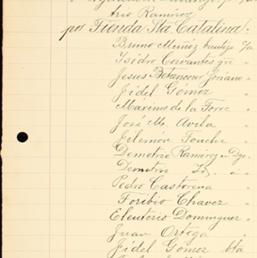 trio Ramirez
por Tienda Sta Catalina/.
Bruno Muñiz
Isidro Cervantes
Jesus Betancour
Fidel Gomez
Maximo de la Torre
José Ma Avila
Filemon
Demetrio Ramirez
Demetrio
Pedro Castorena
Toribio Chavez
Eleuterio Dominguez
Juan Ortega
Fidel Gomez Sta